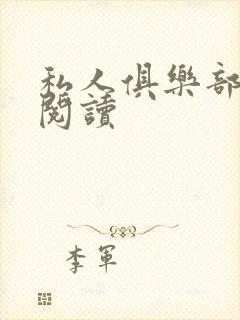 私人俱樂部
閱讀
李軍